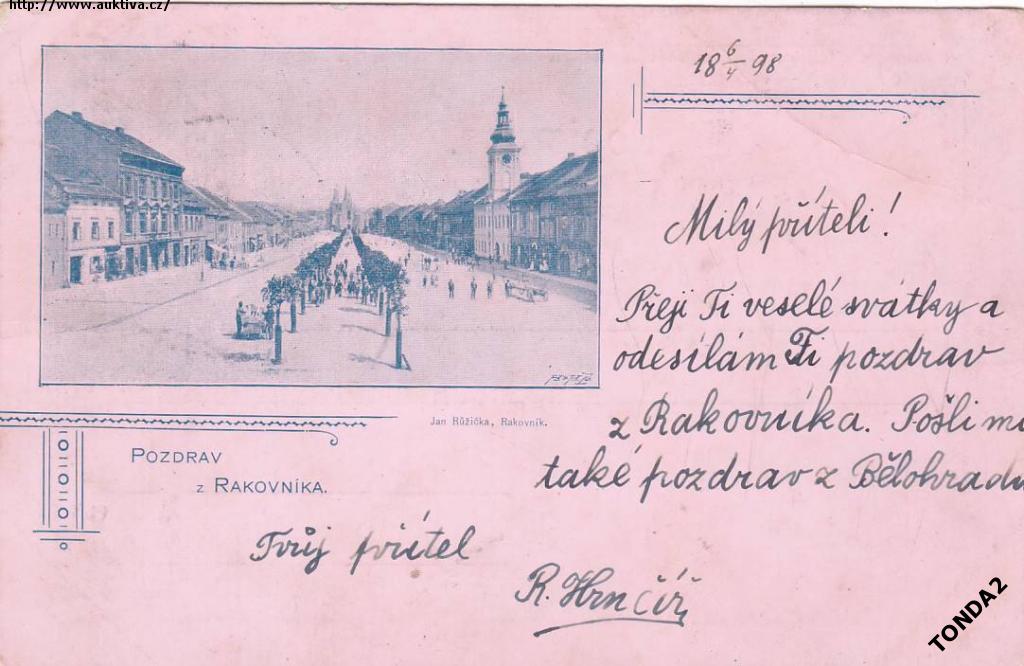 http://www.auktiva.cz/
18 6/4 98
Milý příteli!
Přeji Ti veselé svátky a
odesílám Ti pozdrav
z Rakovníka. Pošli mi
také pozdrav z Bělohradu
Jan Růžička, Rakovník.
POZDRAV
z RAKOVNÍKA.
Tvůj přítel
R. Hrnčíř
TONDA2